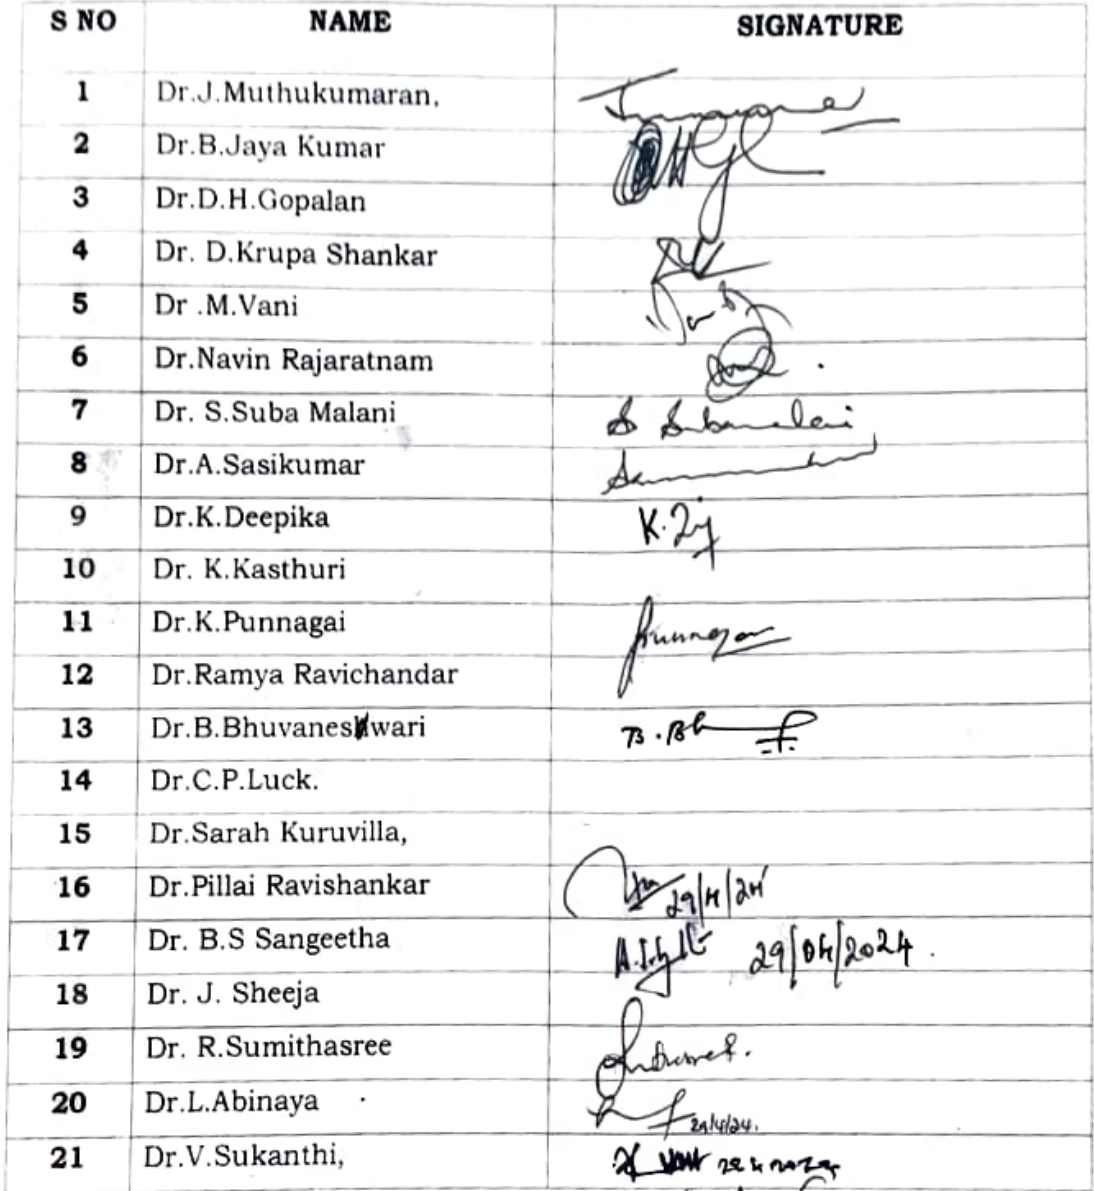 S NO NAME SIGNATURE
1 Dr.J.Muthukumaran,
2 Dr.B.Jaya Kumar
3 Dr.D.H.Gopalan
4 Dr. D.Krupa Shankar
5 Dr .M.Vani
6 Dr.Navin Rajaratnam
7 Dr. S.Suba Malani
8 Dr.A.Sasikumar
9 Dr.K.Deepika
10 Dr. K.Kasthuri
11 Dr.K.Punnagai
12 Dr.Ramya Ravichandar
13 Dr.B.Bhuvaneswari
14 Dr.C.P.Luck.
15 Dr.Sarah Kuruvilla,
16 Dr.Pillai Ravishankar 29/4/24
17 Dr. B.S Sangeetha 29/04/2024.
18 Dr. J. Sheeja
19 Dr. R.Sumithasree
20 Dr.L.Abinaya 29/4/24.
21 Dr.V.Sukanthi,